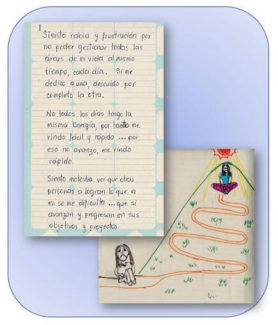 Siento rabia y frustración por
no poder gestionar todas las
áreas de mi vida al mismo
tiempo, cada día. Si me
dedico a una, descuido por
completo la otra.
No todos los días tengo la
misma energía, por tanto me
rindo fácil y rápido ... por
eso no avanzo, me rindo
rápido.
Siento molestia ver que otras
personas si logran lo que a
mi se me dificulta ... que si
avanzan y progresan en sus
objetivos y proyectos.